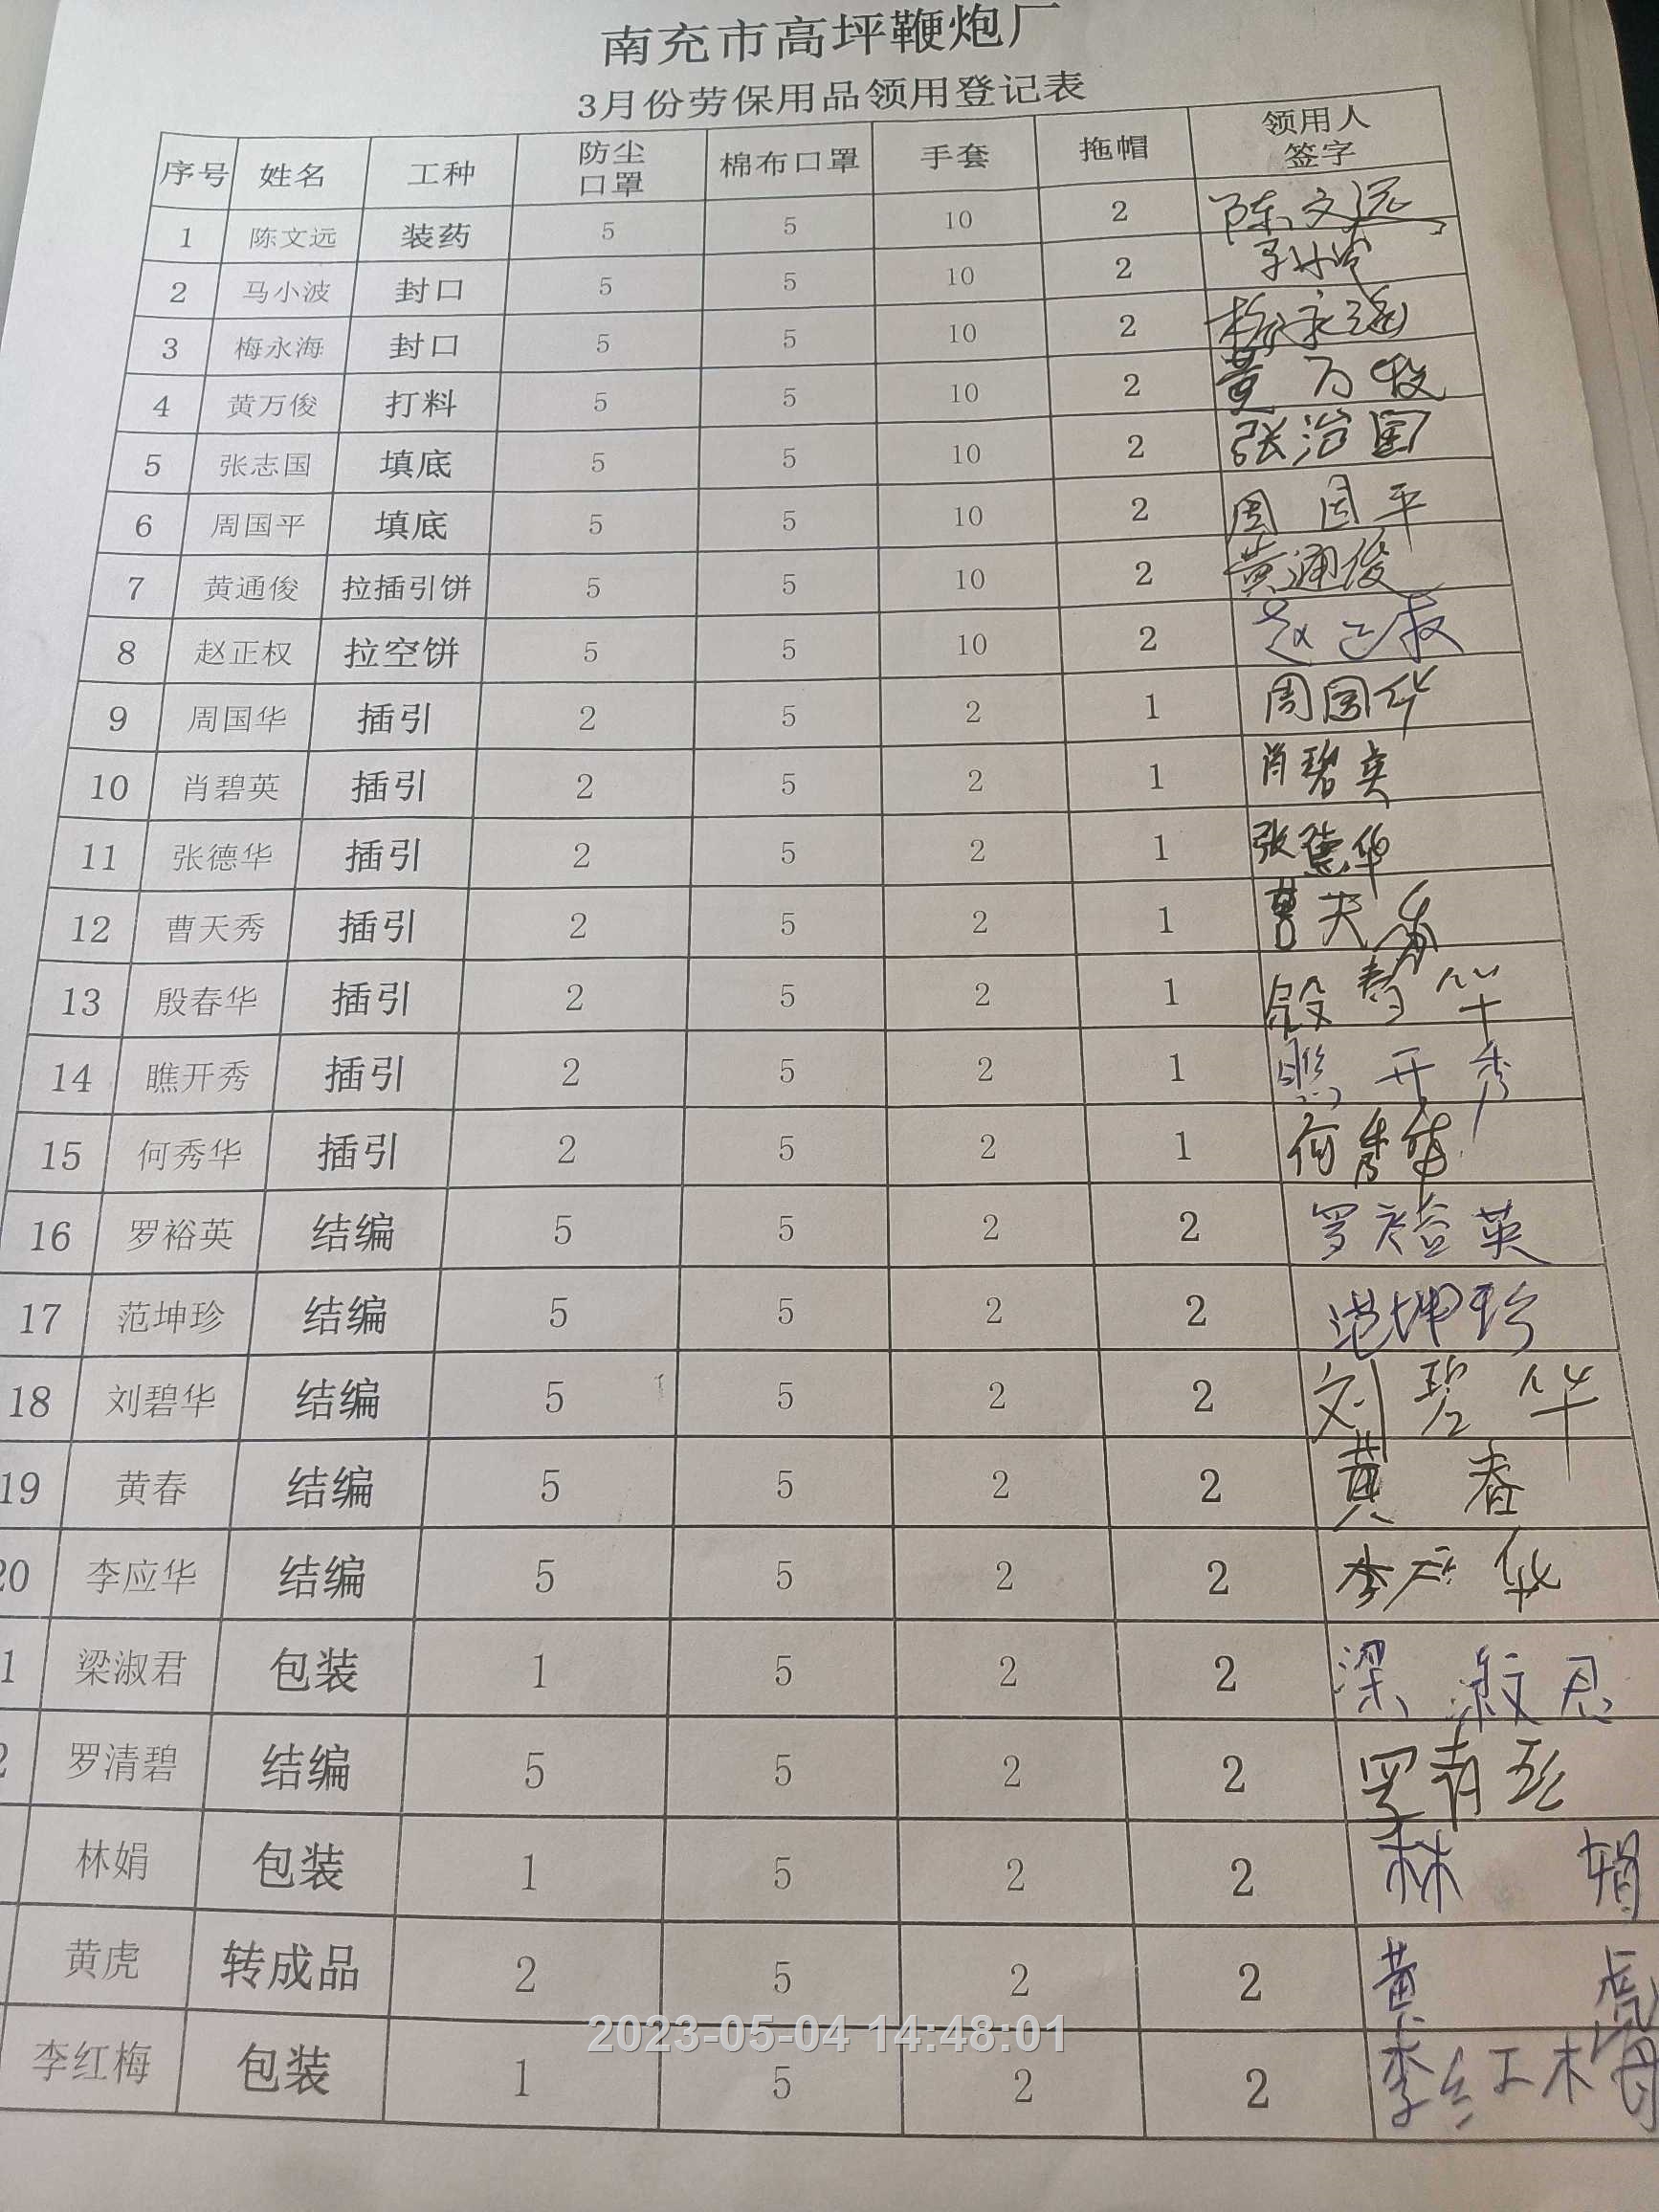 南充市高坪鞭炮厂
3月份劳保用品领用登记表
序号 姓名 工种 防尘口罩 棉布口罩 手套 拖帽 领用人签字
1 陈文远 装药 5 5 10 2 陈文远
2 马小波 封口 5 5 10 2
3 梅永海 封口 5 5 10 2 梅永海
4 黄万俊 打料 5 5 10 2 黄万俊
5 张志国 填底 5 5 10 2 张治国
6 周国平 填底 5 5 10 2 周国平
7 黄通俊 拉插引饼 5 5 10 2 黄通俊
8 赵正权 拉空饼 5 5 10 2 赵正权
9 周国华 插引 2 5 2 1 周国华
10 肖碧英 插引 2 5 2 1 肖碧英
11 张德华 插引 2 5 2 1 张德华
12 曹天秀 插引 2 5 2 1 曹天秀
13 殷春华 插引 2 5 2 1 殷春华
14 瞧开秀 插引 2 5 2 1 开秀
15 何秀华 插引 2 5 2 1 何秀华
16 罗裕英 结编 5 5 2 2 罗裕英
17 范坤珍 结编 5 5 2 2 范坤珍
18 刘碧华 结编 5 5 2 2 刘碧华
19 黄春 结编 5 5 2 2 黄春
20 李应华 结编 5 5 2 2 李应华
1 梁淑君 包装 1 5 2 2 梁淑君
2 罗清碧 结编 5 5 2 2 罗清碧
林娟 包装 1 5 2 2 林娟
黄虎 转成品 2 5 2 2 黄虎
李红梅 包装 1 5 2 2 李红梅
2023-05-04 14:48:01